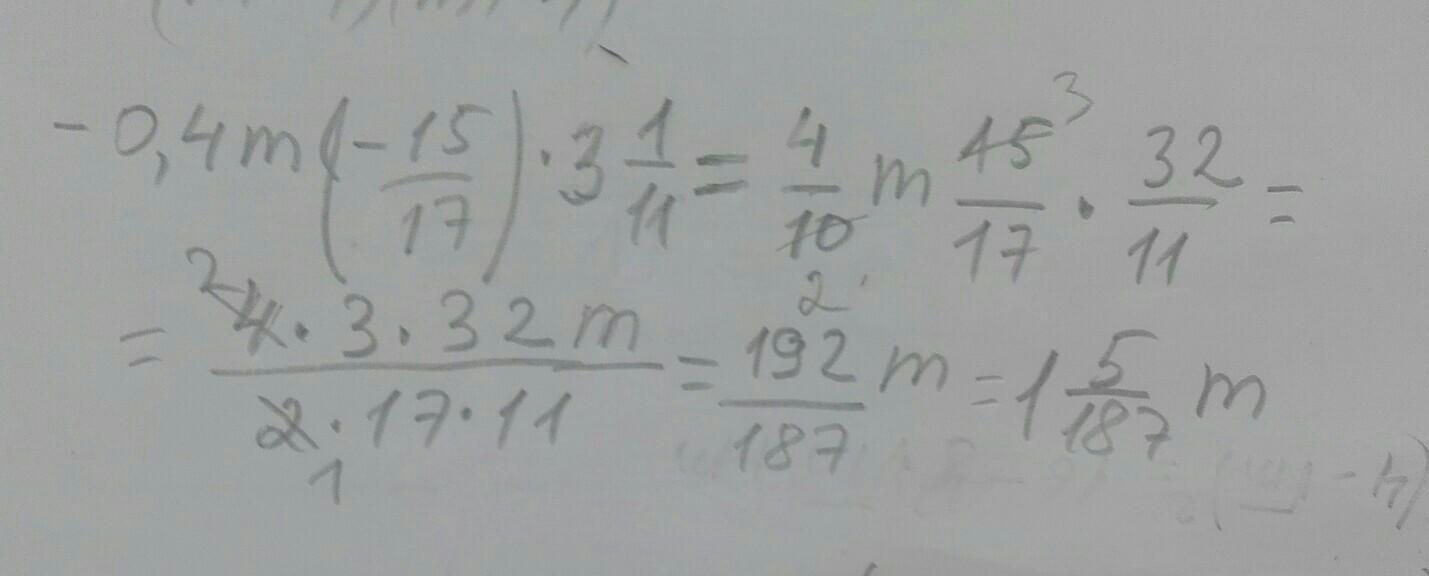 -0,4m(-15/17)·3 1/11 = 4/10 m 15/17 ³ · 32/11 =
2
= ² 4·3·32m / 2·17·11 = 192/187 m = 1 5/187 m
1